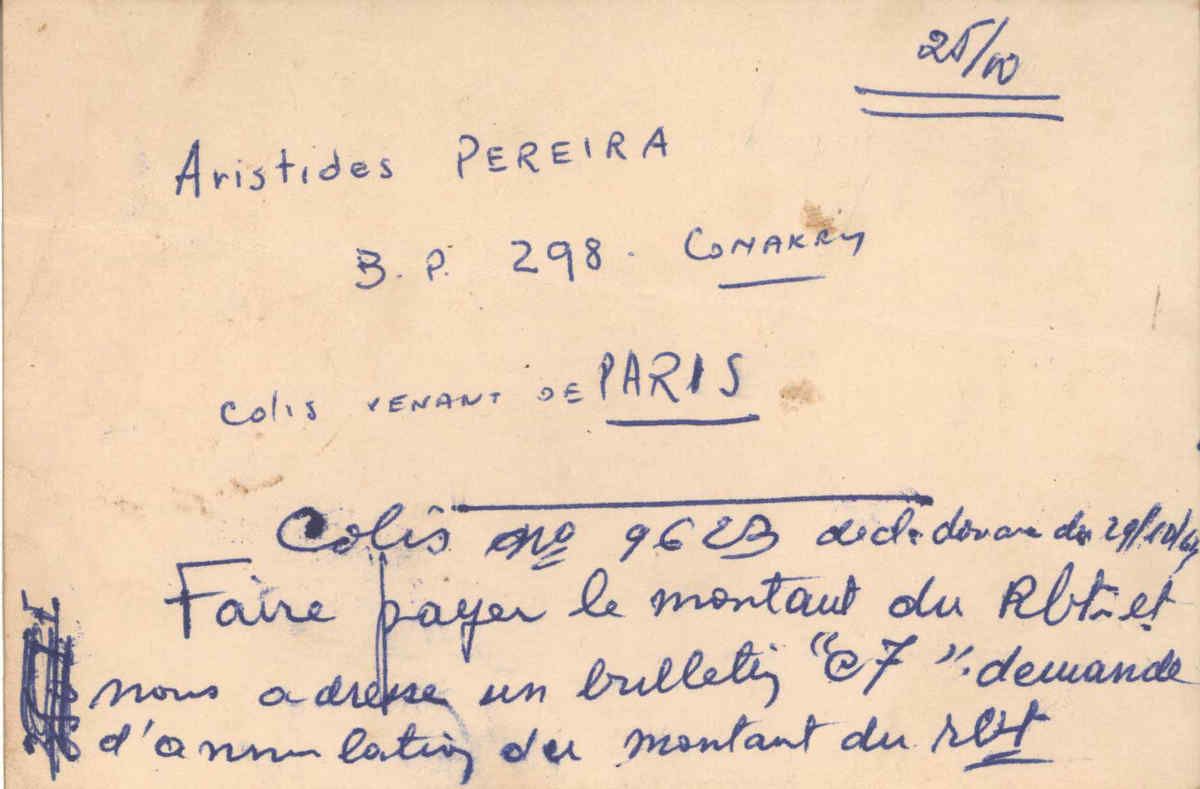 25/10
Aristides PEREIRA
B.P. 298. CONAKRY
Colis VENANT DE PARIS
Colis no 9623 decl. douane du 29/10/
Faire payer le montant du Rbt et
nous adresse un bulletin "C7". demande
d'annulation du montant du rbt